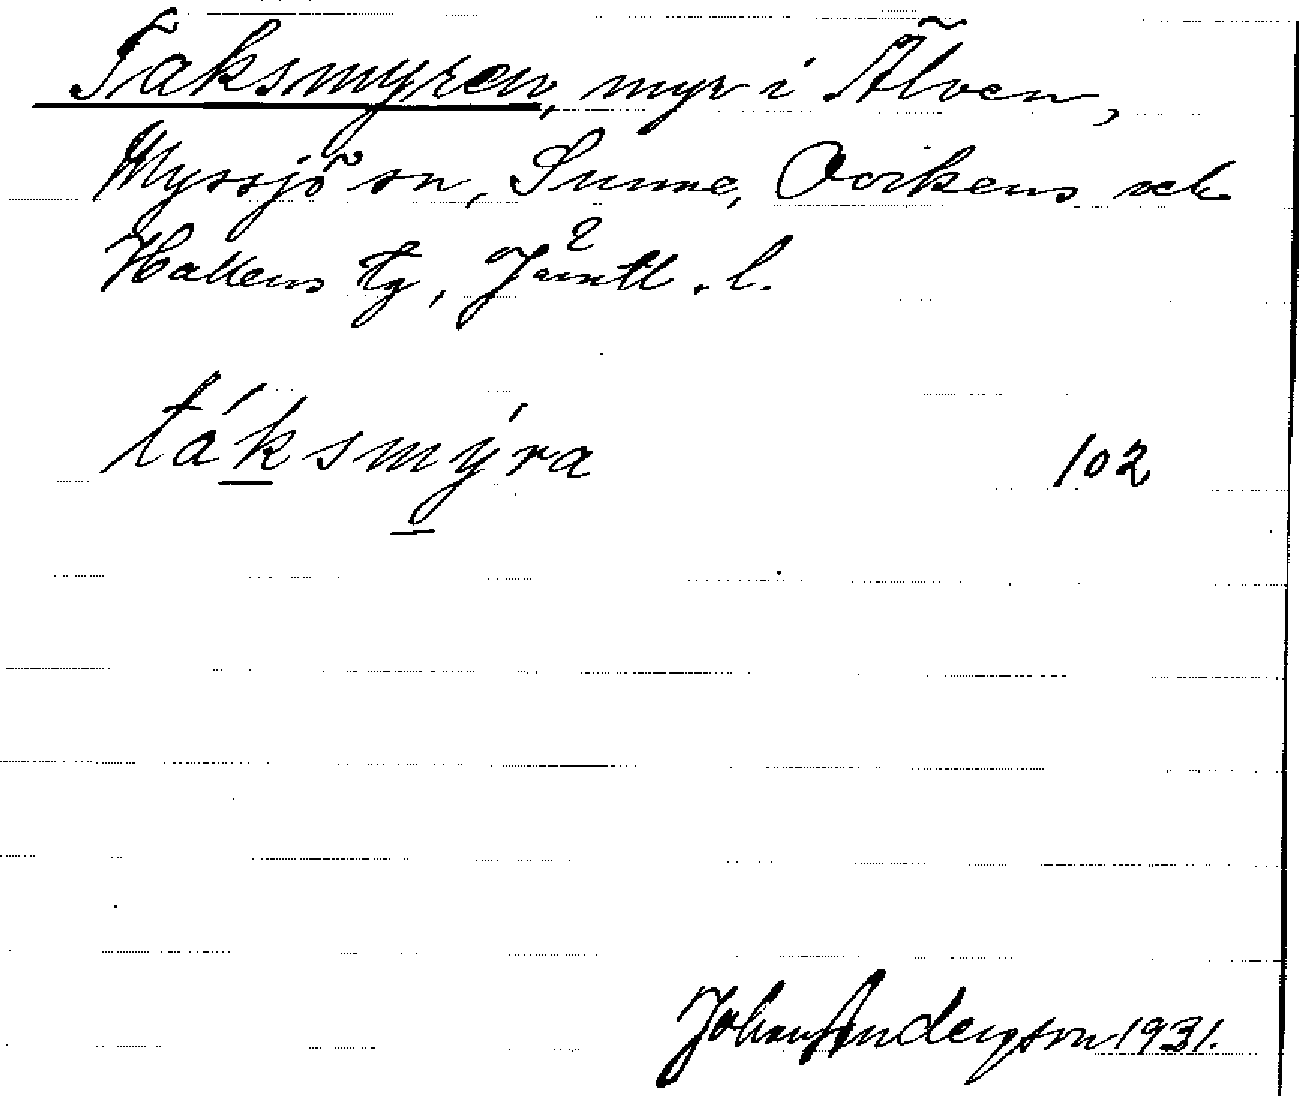 Taksmyren, myr i Älven,
Myssjö sn, Sunne, Ovikens och
Hallens tg, Jämtl. l.
táksmýra 102
Johan Anderson 1931.